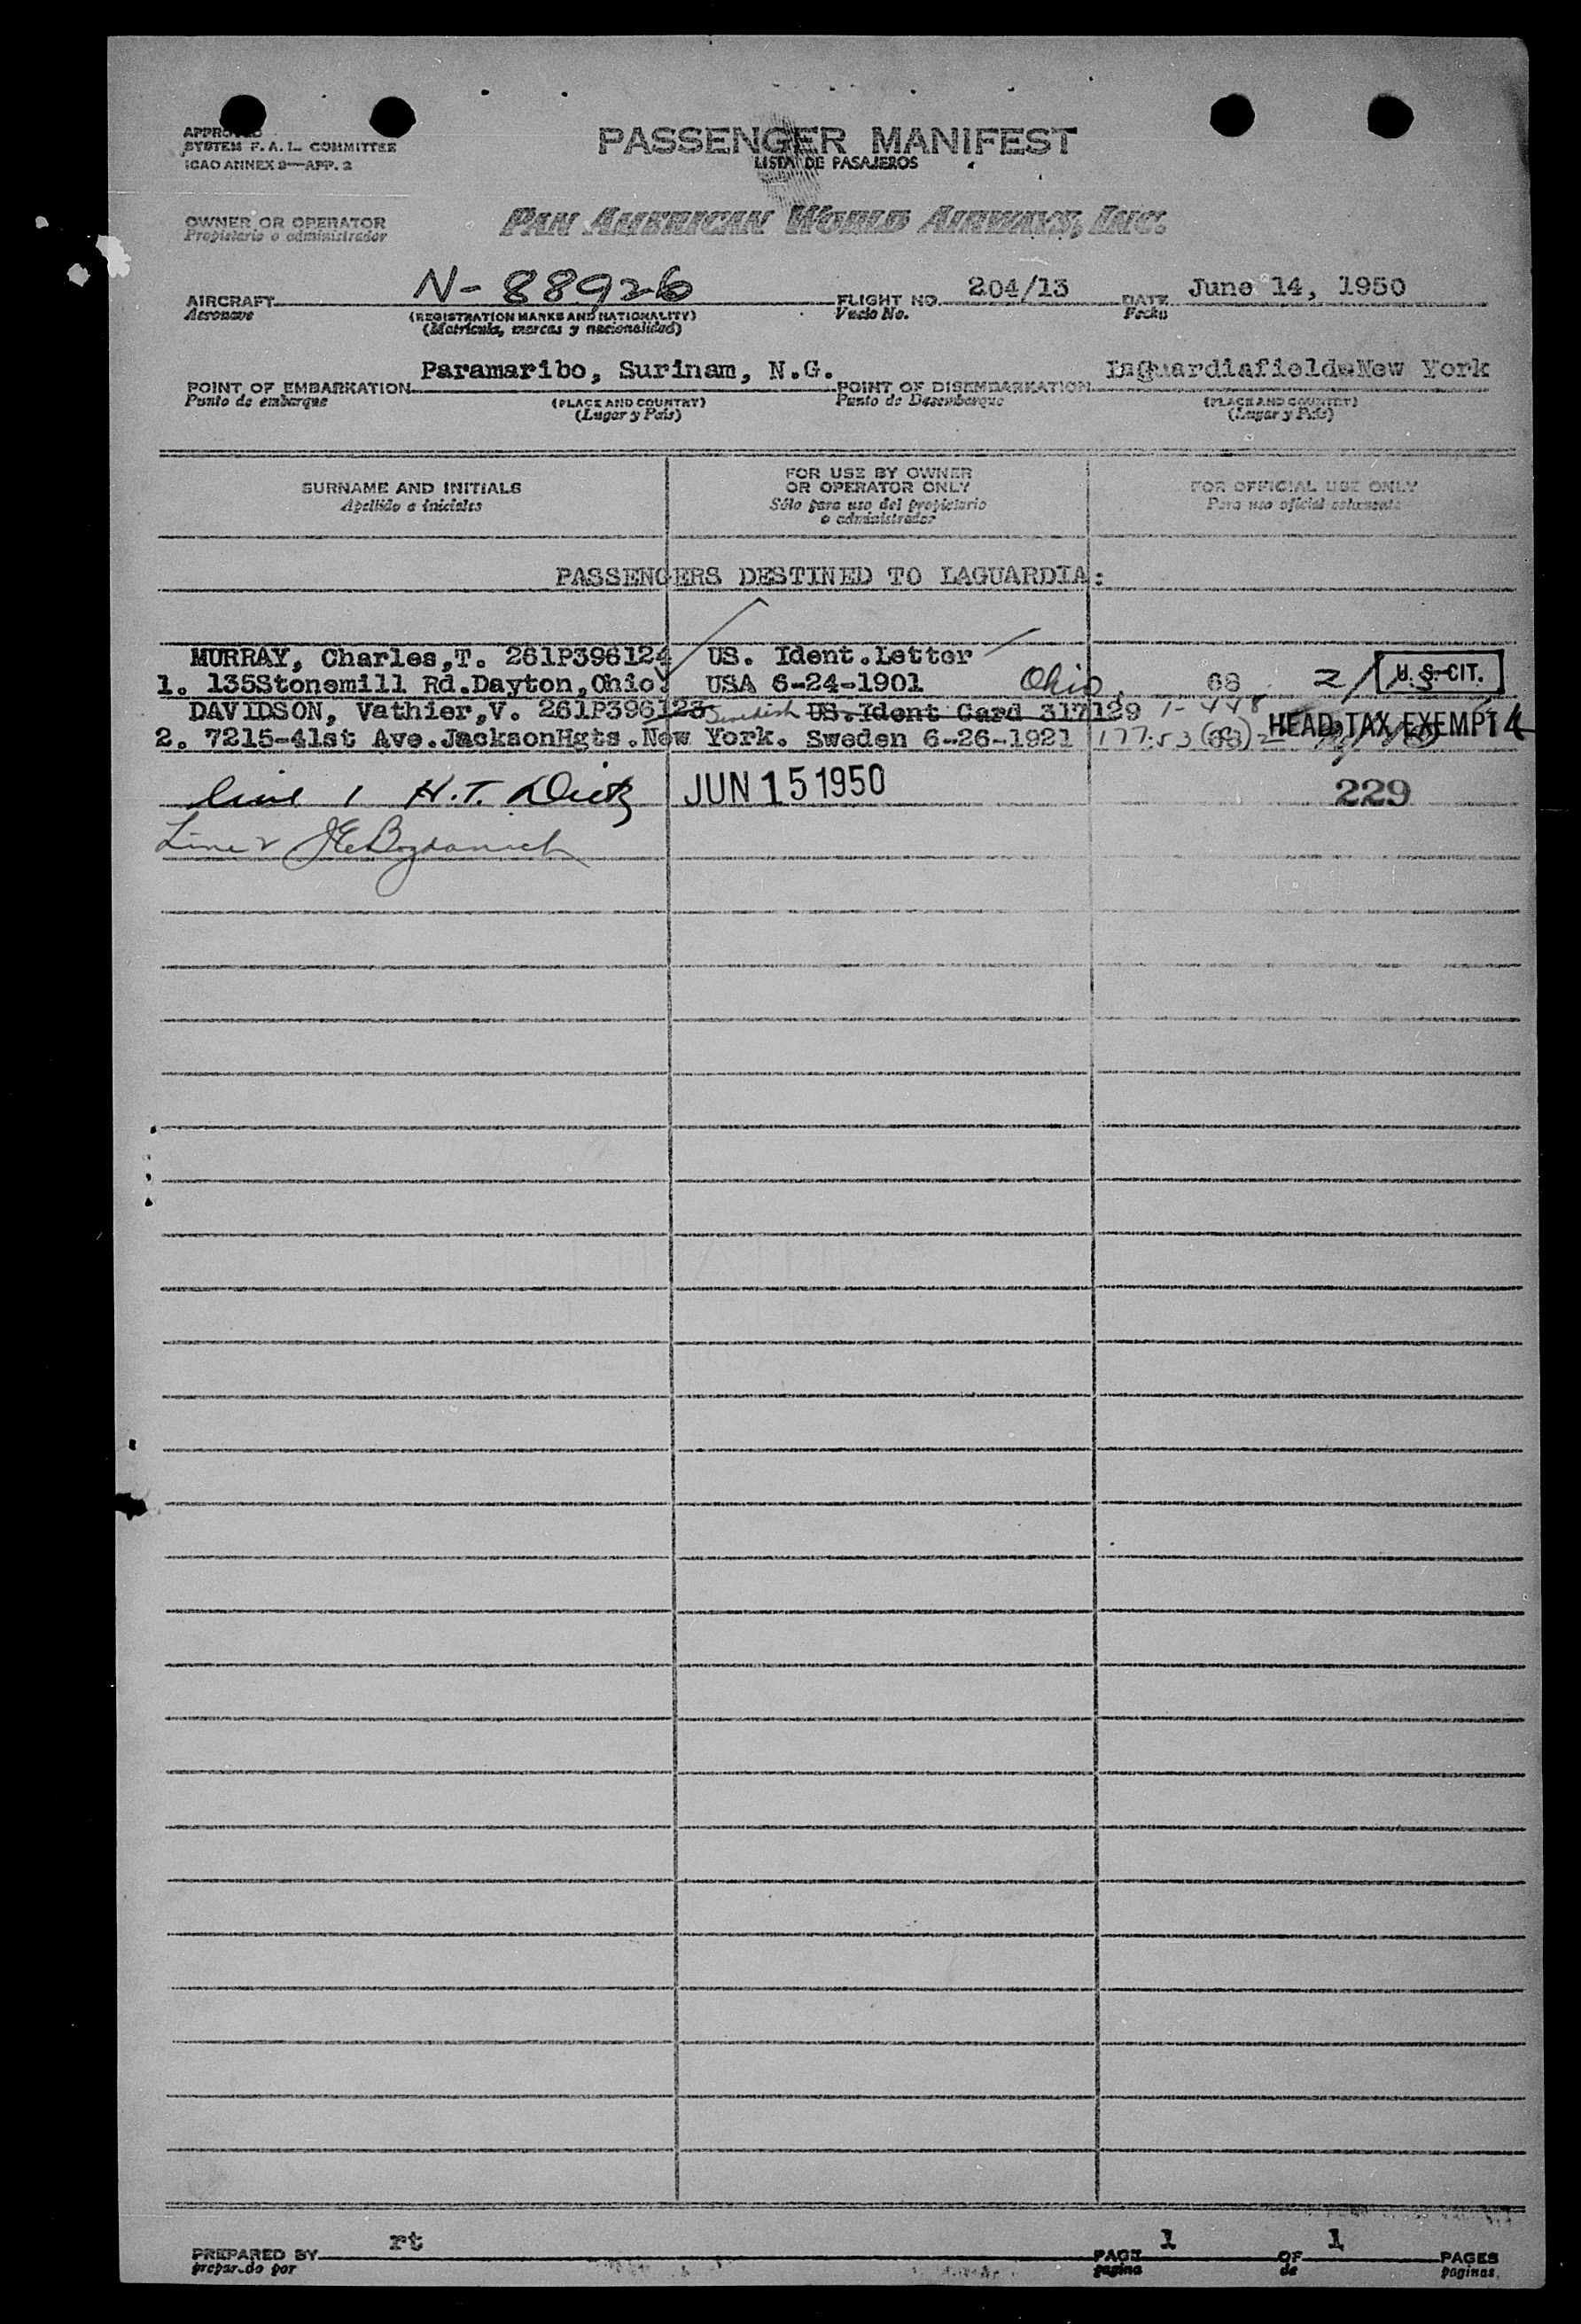 APPROVED
SYSTEM F. A. L. COMMITTEE
ICAO ANNEX 9—APP. 2
PASSENGER MANIFEST
LISTA DE PASAJEROS
OWNER OR OPERATOR
Propietario o administrador
PAN AMERICAN WORLD AIRWAYS, INC.
AIRCRAFT N-88926 FLIGHT NO. 204/13 DATE June 14, 1950
Aeronave (REGISTRATION MARKS AND NATIONALITY) Vuelo No. Fecha
(Matricula, marcas y nacionalidad)
POINT OF EMBARKATION Paramaribo, Surinam, N.G. POINT OF DISEMBARKATION Laguardiafield New York
Punto de embarque (PLACE AND COUNTRY) Punto de Desembarque (PLACE AND COUNTRY)
(Lugar y País) (Lugar y País)
SURNAME AND INITIALS FOR USE BY OWNER OR OPERATOR ONLY FOR OFFICIAL USE ONLY
Apellido e iniciales Sólo para uso del propietario o administrador Para uso oficial solamente
PASSENGERS DESTINED TO LAGUARDIA:
MURRAY, Charles,T. 261P396124 US. Ident.Letter
1. 135Stonemill Rd.Dayton,Ohio. USA 6-24-1901 Ohio, 68 2/ U.S-CIT.
DAVIDSON, Vathier,V. 261P396123 Swedish US.Ident Card 317129 1-448
2. 7215-41st Ave.JacksonHgts.New York. Sweden 6-26-1921 177.53 (68) HEAD TAX EXEMPT
line 1 H.T. Dietz JUN 15 1950 229
Line 2 JEBogdanich
PREPARED BY rt PAGE 1 OF 1 PAGES
preparado por pagina de paginas